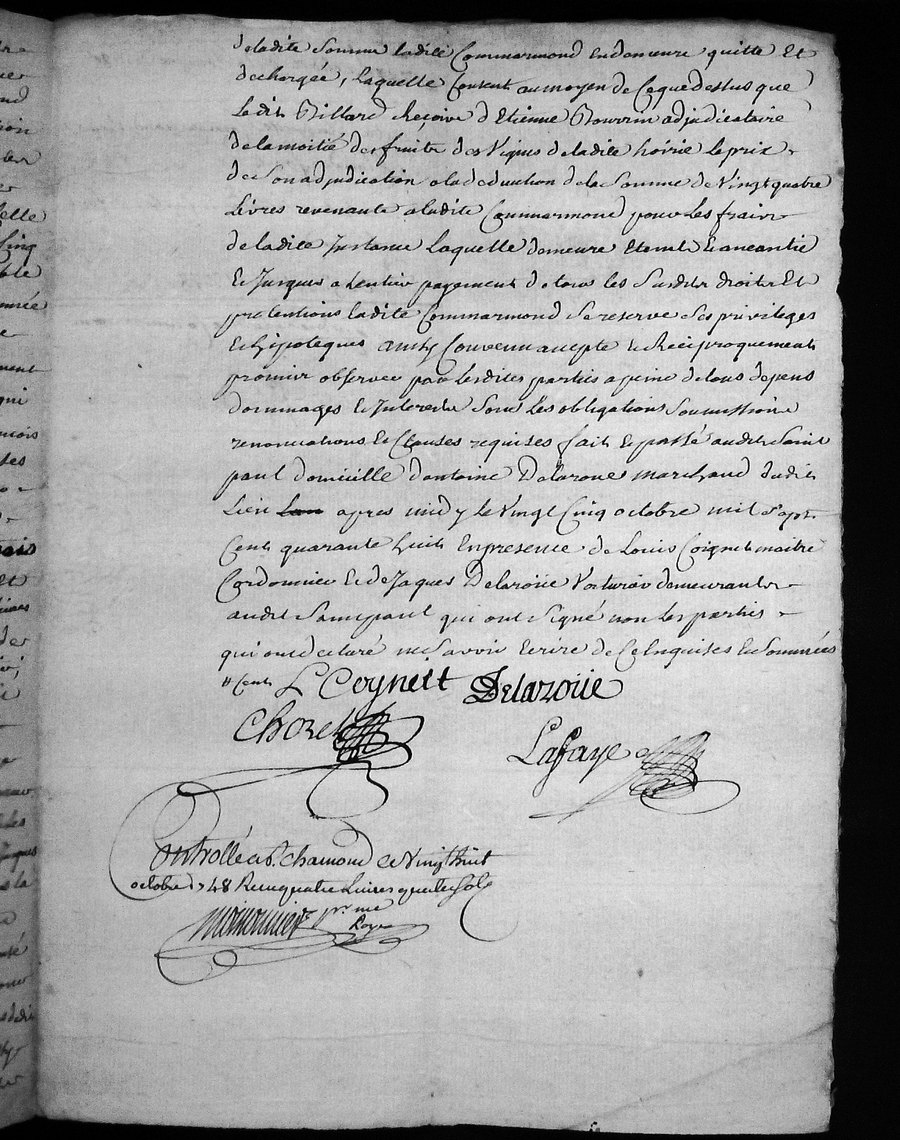 deladite Somme ladite Commarmond En demeure quitte Et
dechargée, Laquelle Consent au moyen de Ceque dessus que
Ledit Billard Reçoive d'Etienne Bourrin adjudicataire
de la moitié des fruits des Vignes de ladite hoirie Le prix
de Son adjudication a la deduction de la Somme de Vingt quatre
Livres revenante a ladite Commarmond pour Les frais
de ladite Instance Laquelle demeure Eteinte Et aneantie
Et Jusques a L'entier payement de tous les Susdits droits Et
pretentions ladite Commarmond Se reserve Ses privileges
Et hipoteques ainsy Convenu accepté Et Reciproquement
promis observer par Lesdites parties a peine de tous depens
dommages Et Interests Sous Les obligations Soumissions
renonciations Et Clauses requises fait Et passé audit Saint
paul domicille d'antoine Delaroue marchand dudit
Lieu apres midy le Vingt Cinq octobre mil Sept
Cent quarante huit En presence de Louis Coignet maitre
Cordonnier Et de Jaques Delaroüe Voiturier demeurants
audit Saint paul qui ont Signé non Les parties
qui ont declaré ne Savoir Ecrire de Ce Enquises Et Sommées
L Coynett Delaroüe
Chorel
Lafaye
Controllé a St. Chamond ce Vingt huit
octobre 1748 Reçu quatre Livres quatre Sols